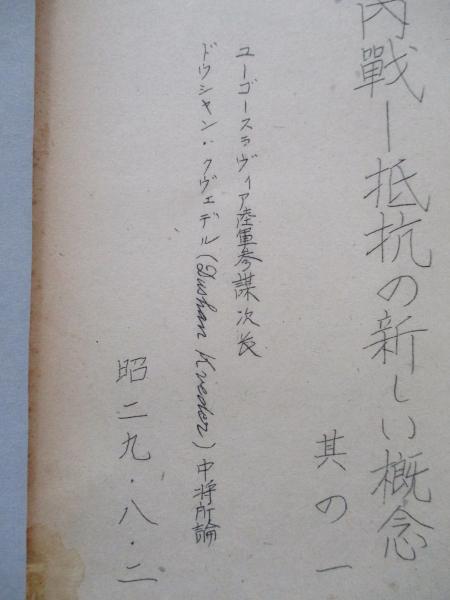 内戰ー抵抗の新しい概念
其の一
ユーゴースラヴィア陸軍参謀次長
ドウシャン・クヴェデル(Dushan Kveder)中将所論
昭二九・八・二